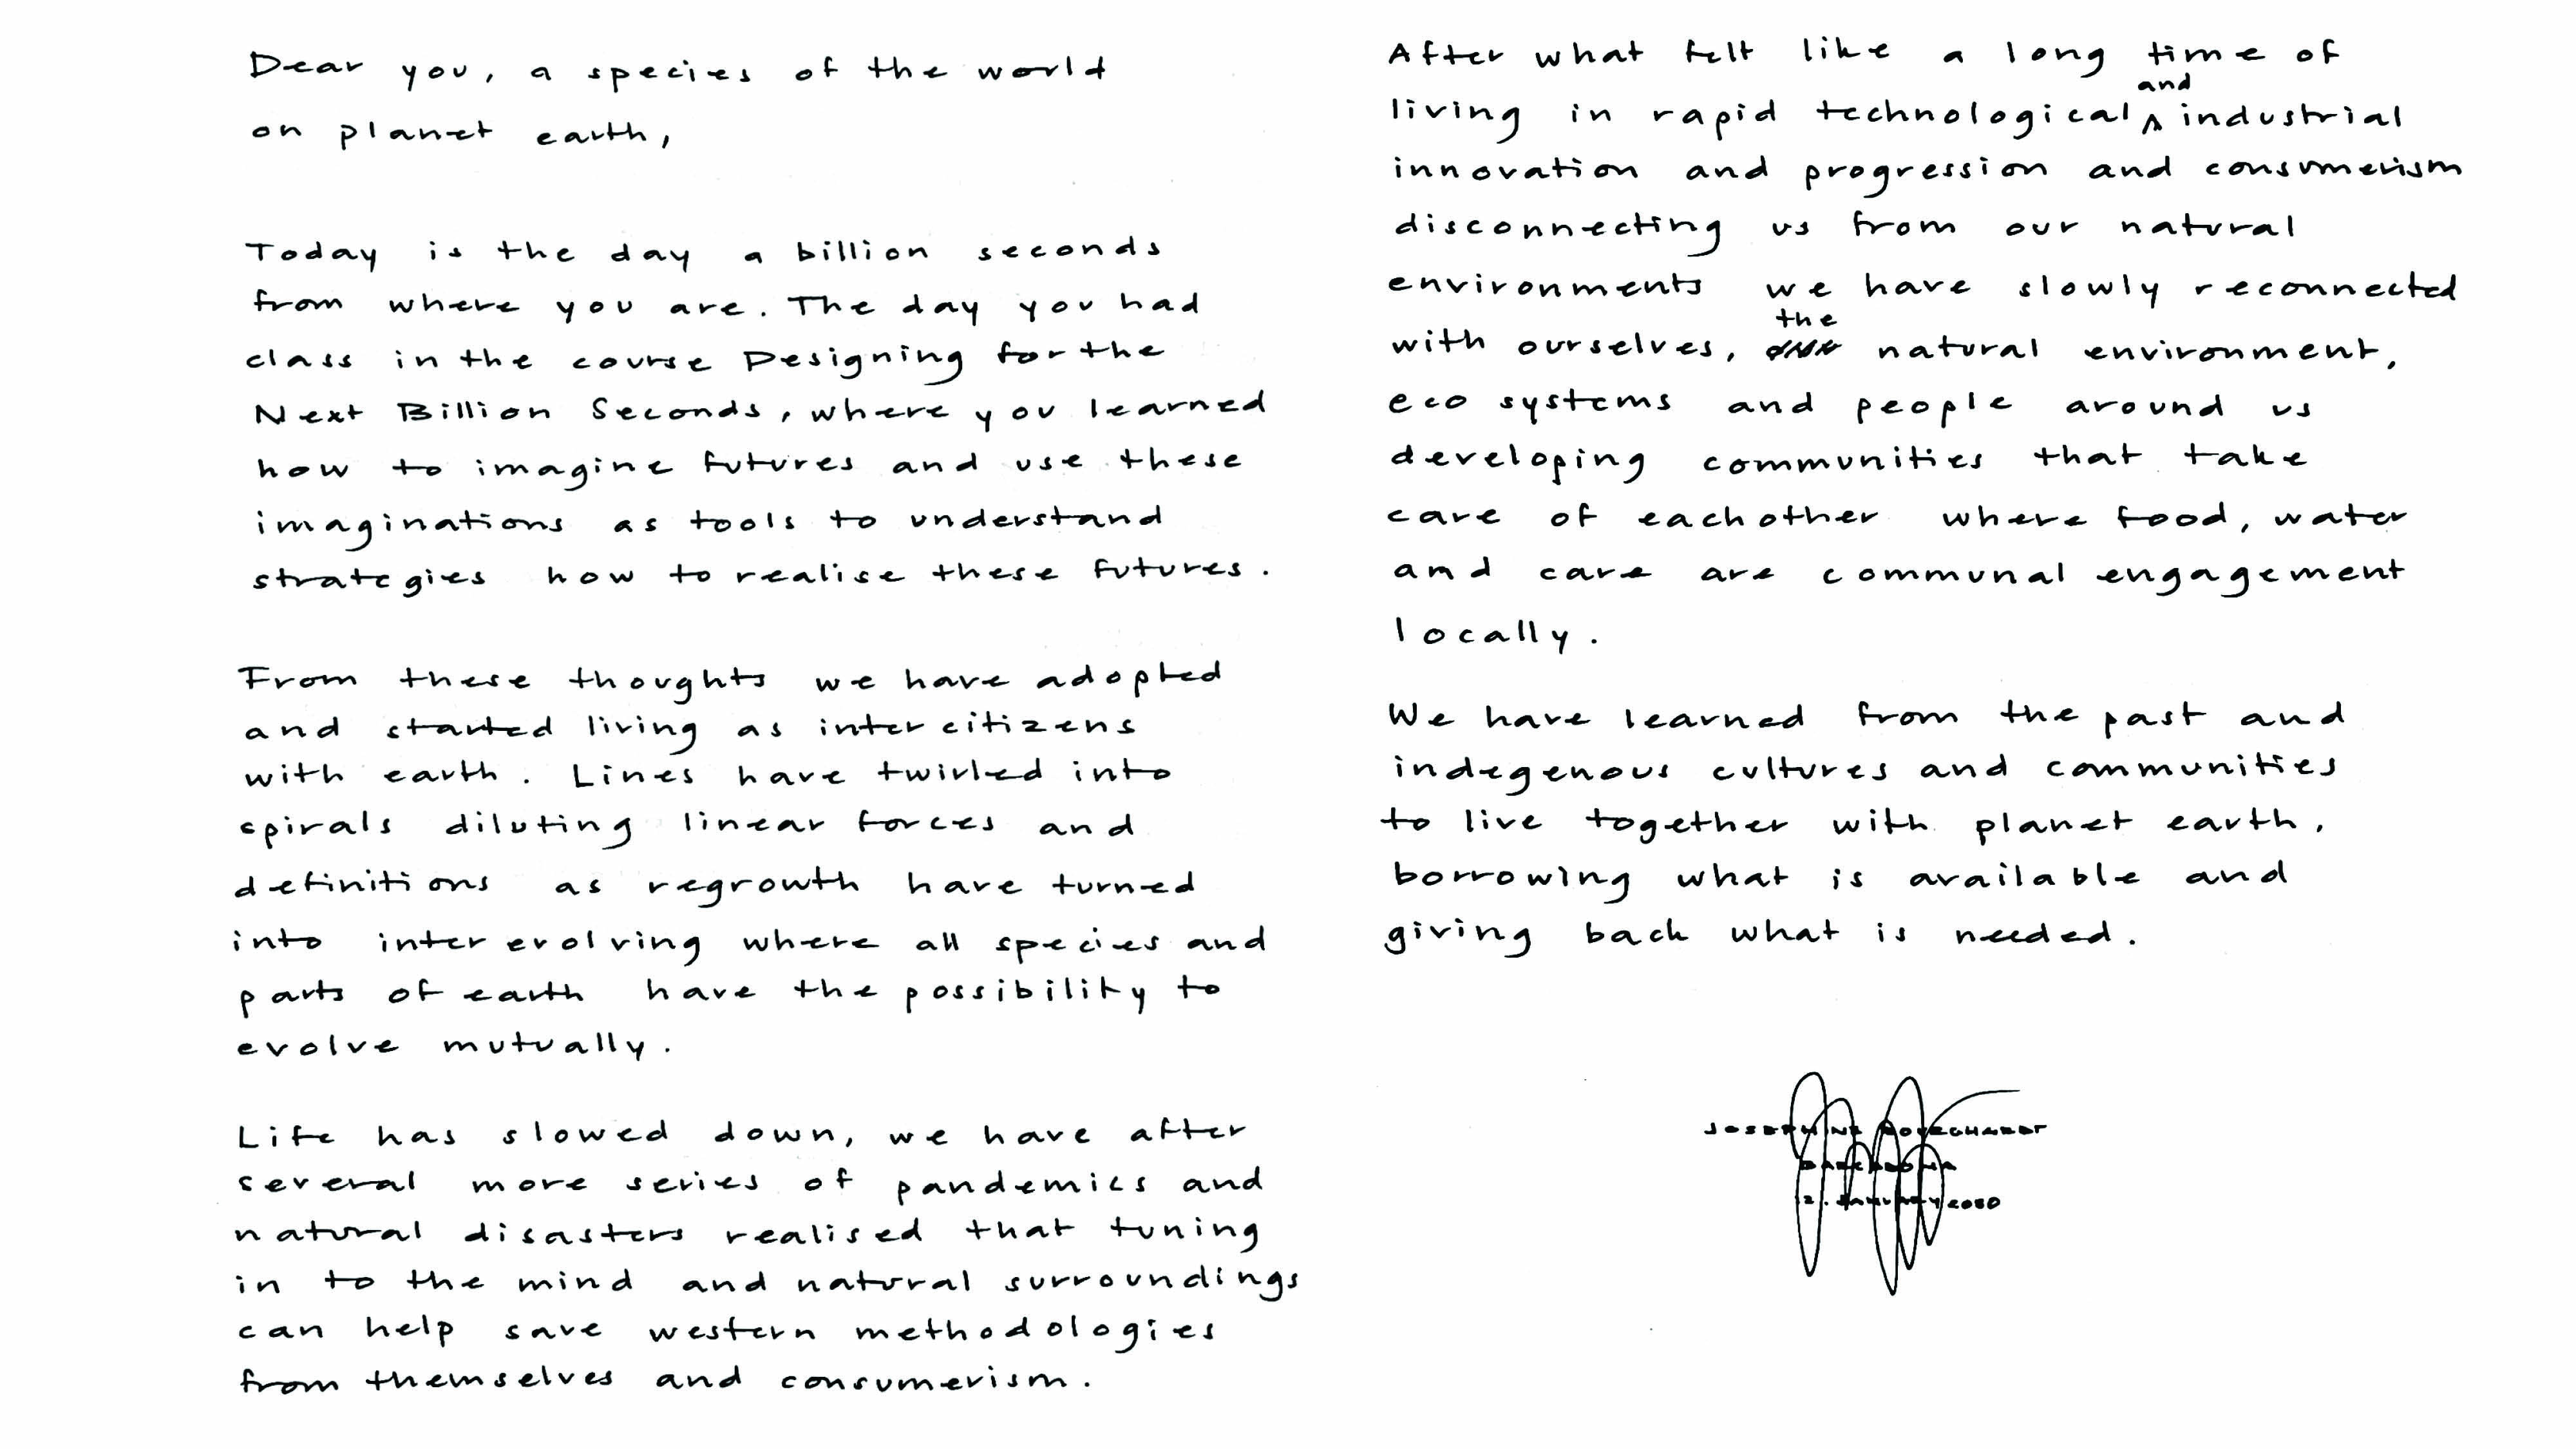 Dear you, a species of the world
on planet earth,
Today is the day a billion seconds
from where you are. The day you had
class in the course Designing for the
Next Billion Seconds, where you learned
how to imagine futures and use these
imaginations as tools to understand
strategies how to realise these futures.
From these thoughts we have adopted
and started living as inter citizens
with earth. Lines have twirled into
spirals diluting linear forces and
definitions as regrowth have turned
into inter evolving where all species and
parts of earth have the possibility to
evolve mutually.
Life has slowed down, we have after
several more series of pandemics and
natural disasters realised that tuning
in to the mind and natural surroundings
can help save western methodologies
from themselves and consumerism.
After what felt like a long time of
living in rapid technological and industrial
innovation and progression and consumerism
disconnecting us from our natural
environments we have slowly reconnected
with ourselves, the natural environment,
eco systems and people around us
developing communities that take
care of eachother where food, water
and care are communal engagement
locally.
We have learned from the past and
indegenous cultures and communities
to live together with planet earth,
borrowing what is available and
giving back what is needed.
JOSEPHINE
BARCELONA
JANUARY